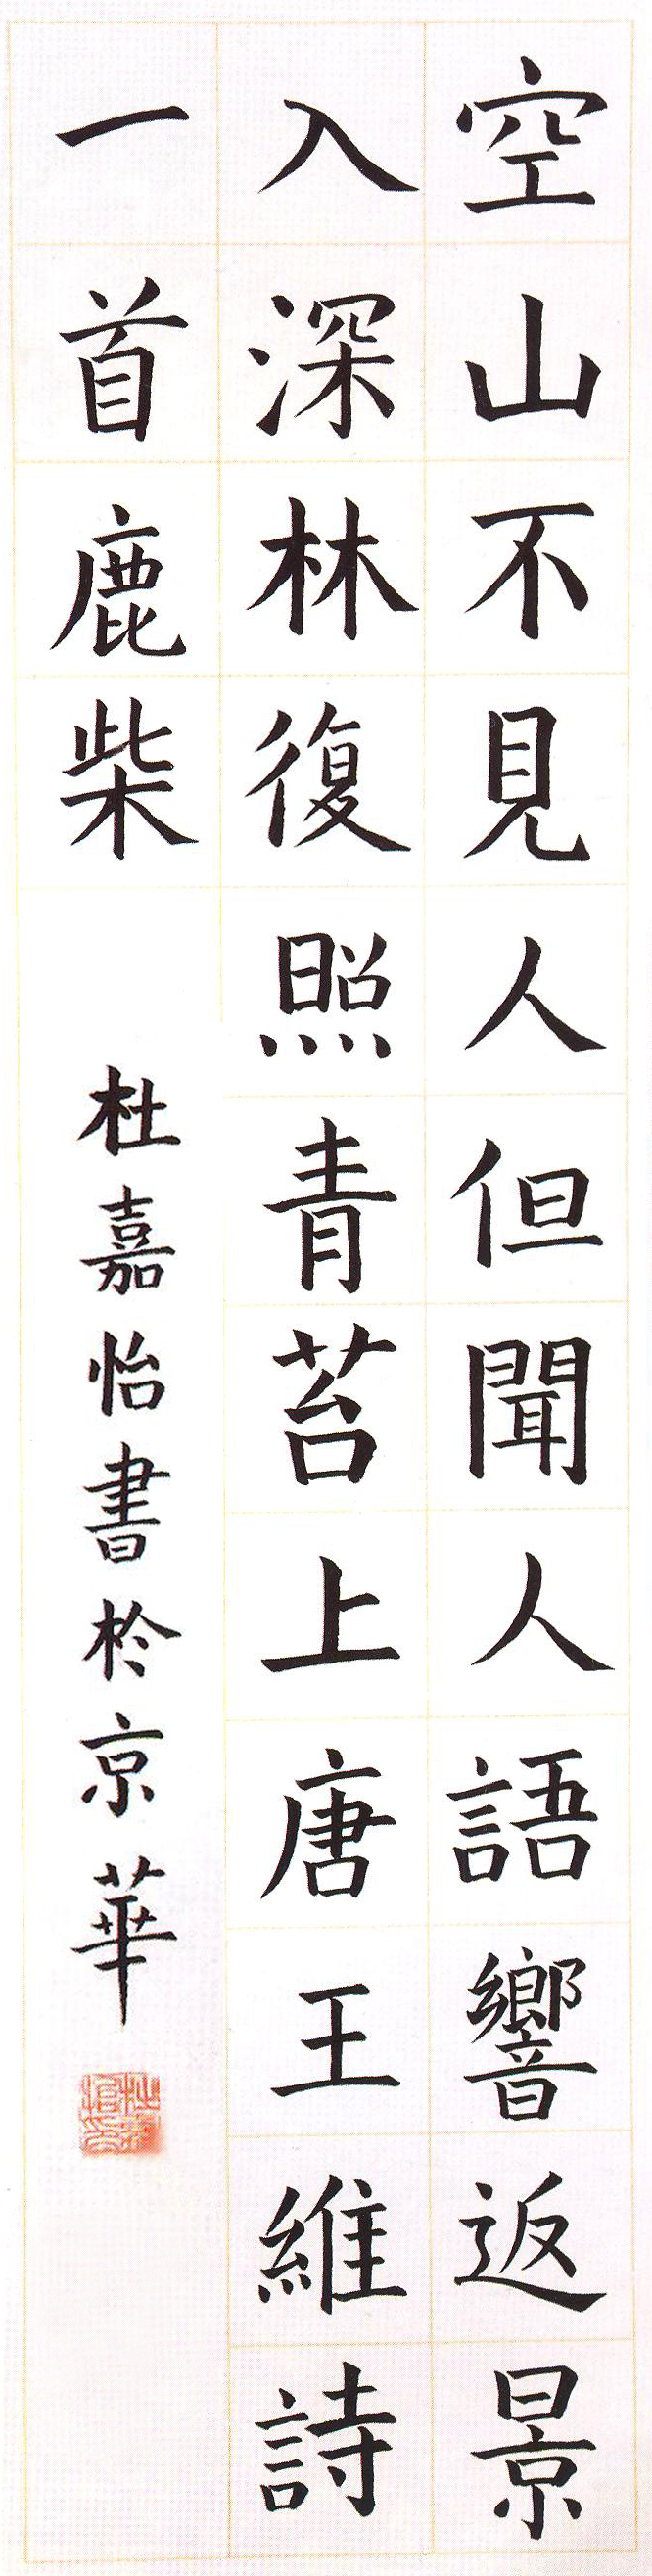 空山不見人但聞人語響返景
入深林復照青苔上唐王維詩
一首鹿柴
杜嘉怡書於京華